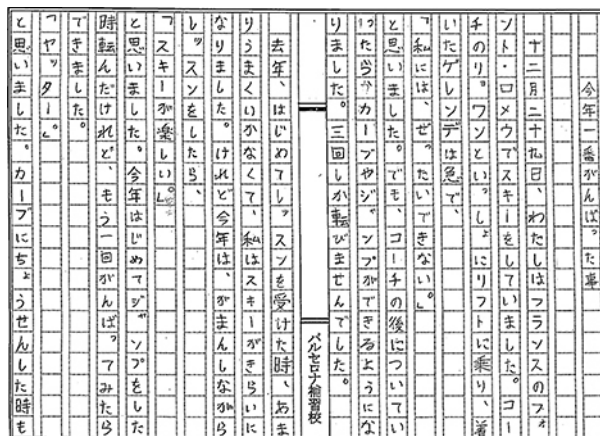 今年一番がんばった事
十二月二十九日、わたしはフランスのフォ
ント・ロメウでスキーをしていました。コー
チのリ。ワンといっしょにリフトに乗り、着
いたゲレンデは急で、
「私には、ぜったいできない」。
と思いました。でも、コーチの後についてい
ったらカーブやジャンプができるようにな
りました。三回しか転びませんでした。
バルセロナ補習校
去年、はじめてレッスンを受けた時、あま
りうまくいかなくて、私はスキーがきらいに
なりました。けれど今年は、がまんしながら
レッスンをしたら、
「スキーが楽しい」。
と思いました。今年はじめてジャンプをした
時転んだけれど、もう一回がんばってみたら
できました。
「ヤッター」。
と思いました。カーブにちょうせんした時も